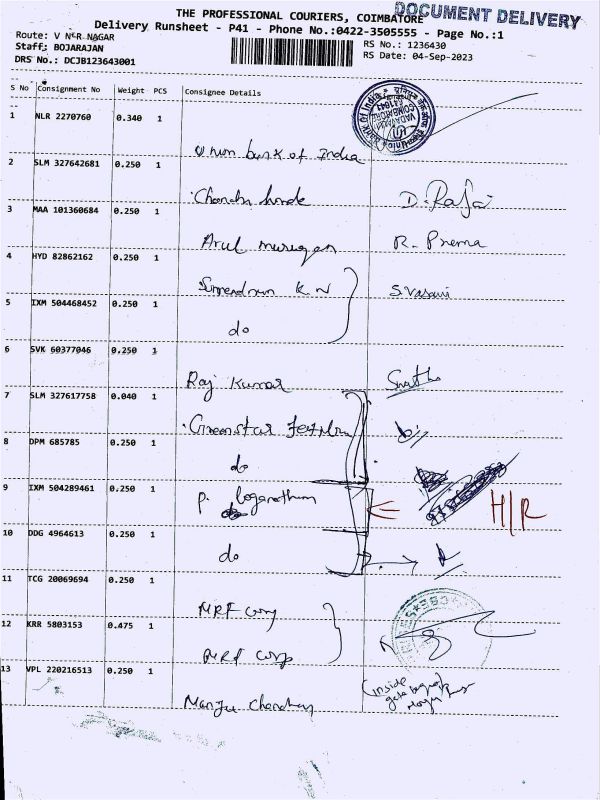 THE PROFESSIONAL COURIERS, COIMBATORE
DOCUMENT DELIVERY
Delivery Runsheet - P41 - Phone No.:0422-3505555 - Page No.:1
Route: V N R NAGAR
RS No.: 1236430
Staff: BOJARAJAN
RS Date: 04-Sep-2023
DRS No.: DCJB123643001
S No Consignment No Weight PCS Consignee Details
1 NLR 2270760 0.340 1
Union bank of India
2 SLM 327642681 0.250 1
Chandra D. Raja
3 MAA 101360684 0.250 1
Arul murugan R. Prema
4 HYD 82862162 0.250 1
K N S. Vasani
5 IXM 504468452 0.250 1
do
6 SVK 60377046 0.250 1
Raj Kumar
7 SLM 327617758 0.040 1
Greenstar
8 DPM 685785 0.250 1
do
9 IXM 504289461 0.250 1
P. Loganathan H/R
10 DDG 4964613 0.250 1
do
11 TCG 20069694 0.250 1
MRF Corp
12 KRR 5803153 0.475 1
MRF Corp
13 VPL 220216513 0.250 1
(inside
Manju